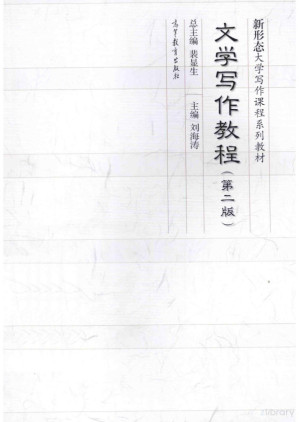 新形态大学写作课程系列教材
文学写作教程(第二版)
总主编 裴显生
主编 刘海涛
高等教育出版社